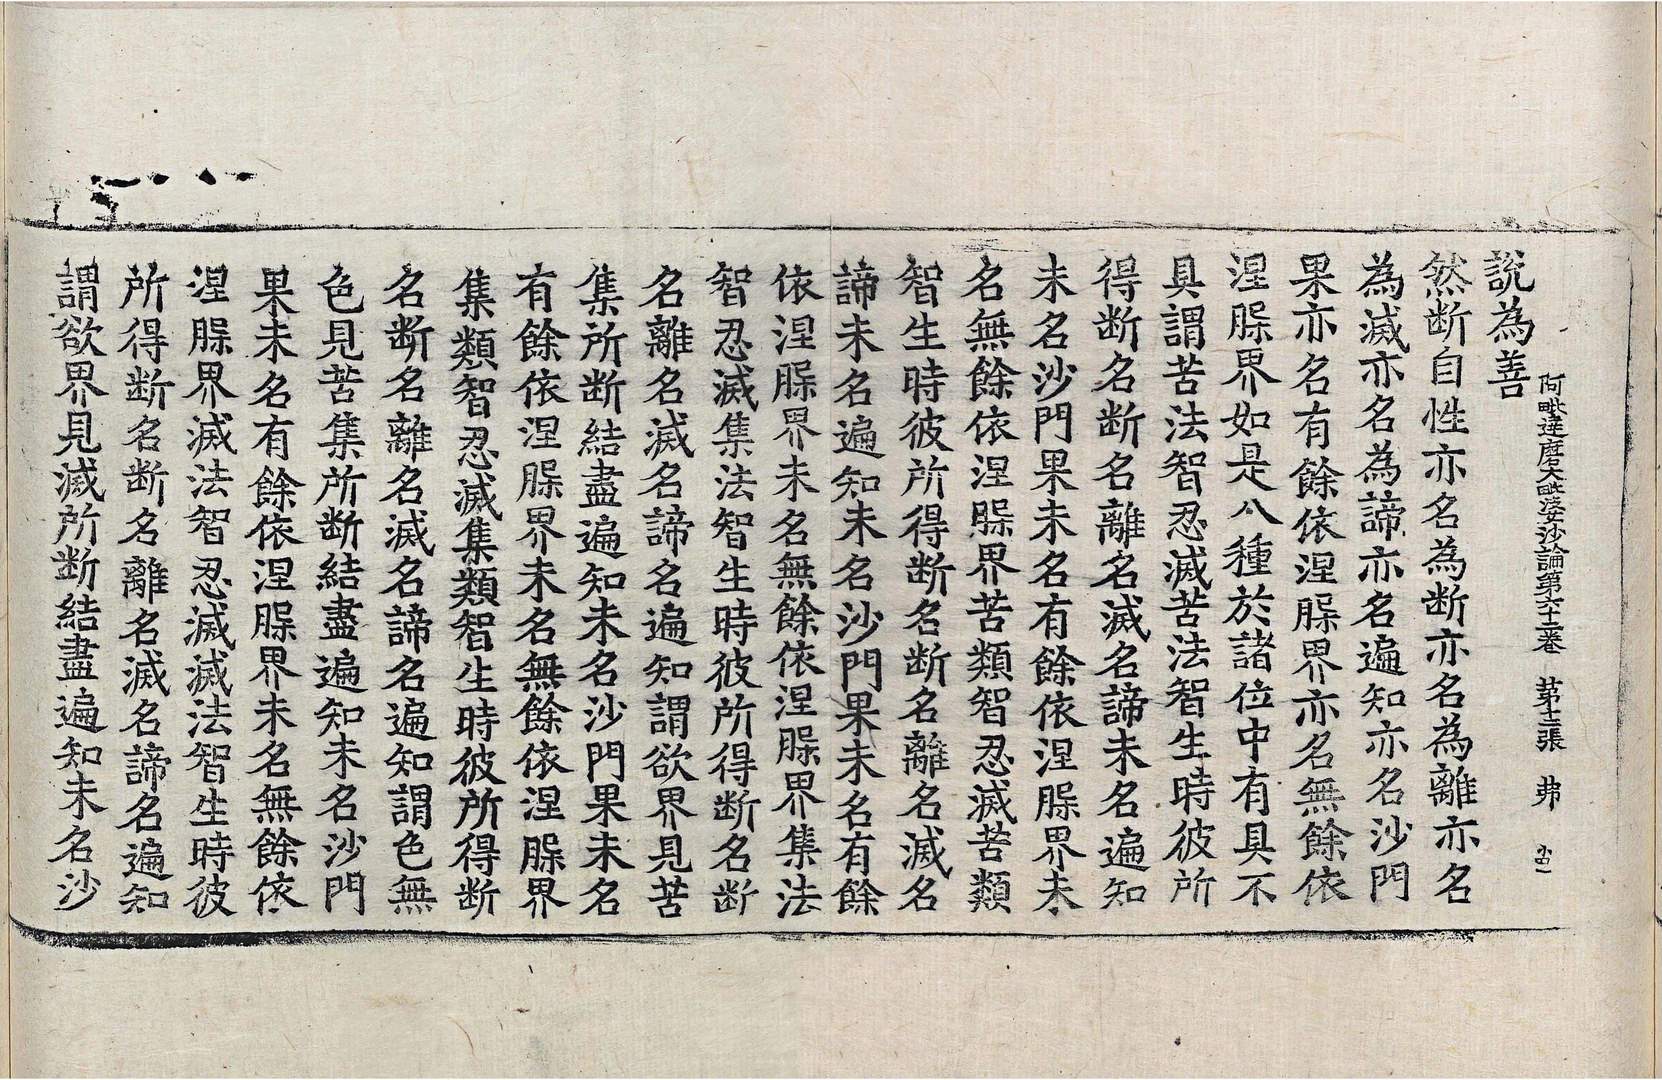 阿毗達磨大毗婆沙論第六十二卷 第十三張 弗
說為善
然断自性亦名為断亦名為離亦名
為滅亦名為諦亦名遍知亦名沙門
果亦名有餘依涅槃界亦名無餘依
涅槃界如是八種於諸位中有具不
具謂苦法智忍滅苦法智生時彼所
得断名断名離名滅名諦未名遍知
未名沙門果未名有餘依涅槃界未
名無餘依涅槃界苦類智忍滅苦類
智生時彼所得断名断名離名滅名
諦未名遍知未名沙門果未名有餘
依涅槃界未名無餘依涅槃界集法
智忍滅集法智生時彼所得断名断
名離名滅名諦名遍知謂欲界見苦
集所断結盡遍知未名沙門果未名
有餘依涅槃界未名無餘依涅槃界
集類智忍滅集類智生時彼所得断
名断名離名滅名諦名遍知謂色無
色見苦集所断結盡遍知未名沙門
果未名有餘依涅槃界未名無餘依
涅槃界滅法智忍滅滅法智生時彼
所得断名断名離名滅名諦名遍知
謂欲界見滅所断結盡遍知未名沙